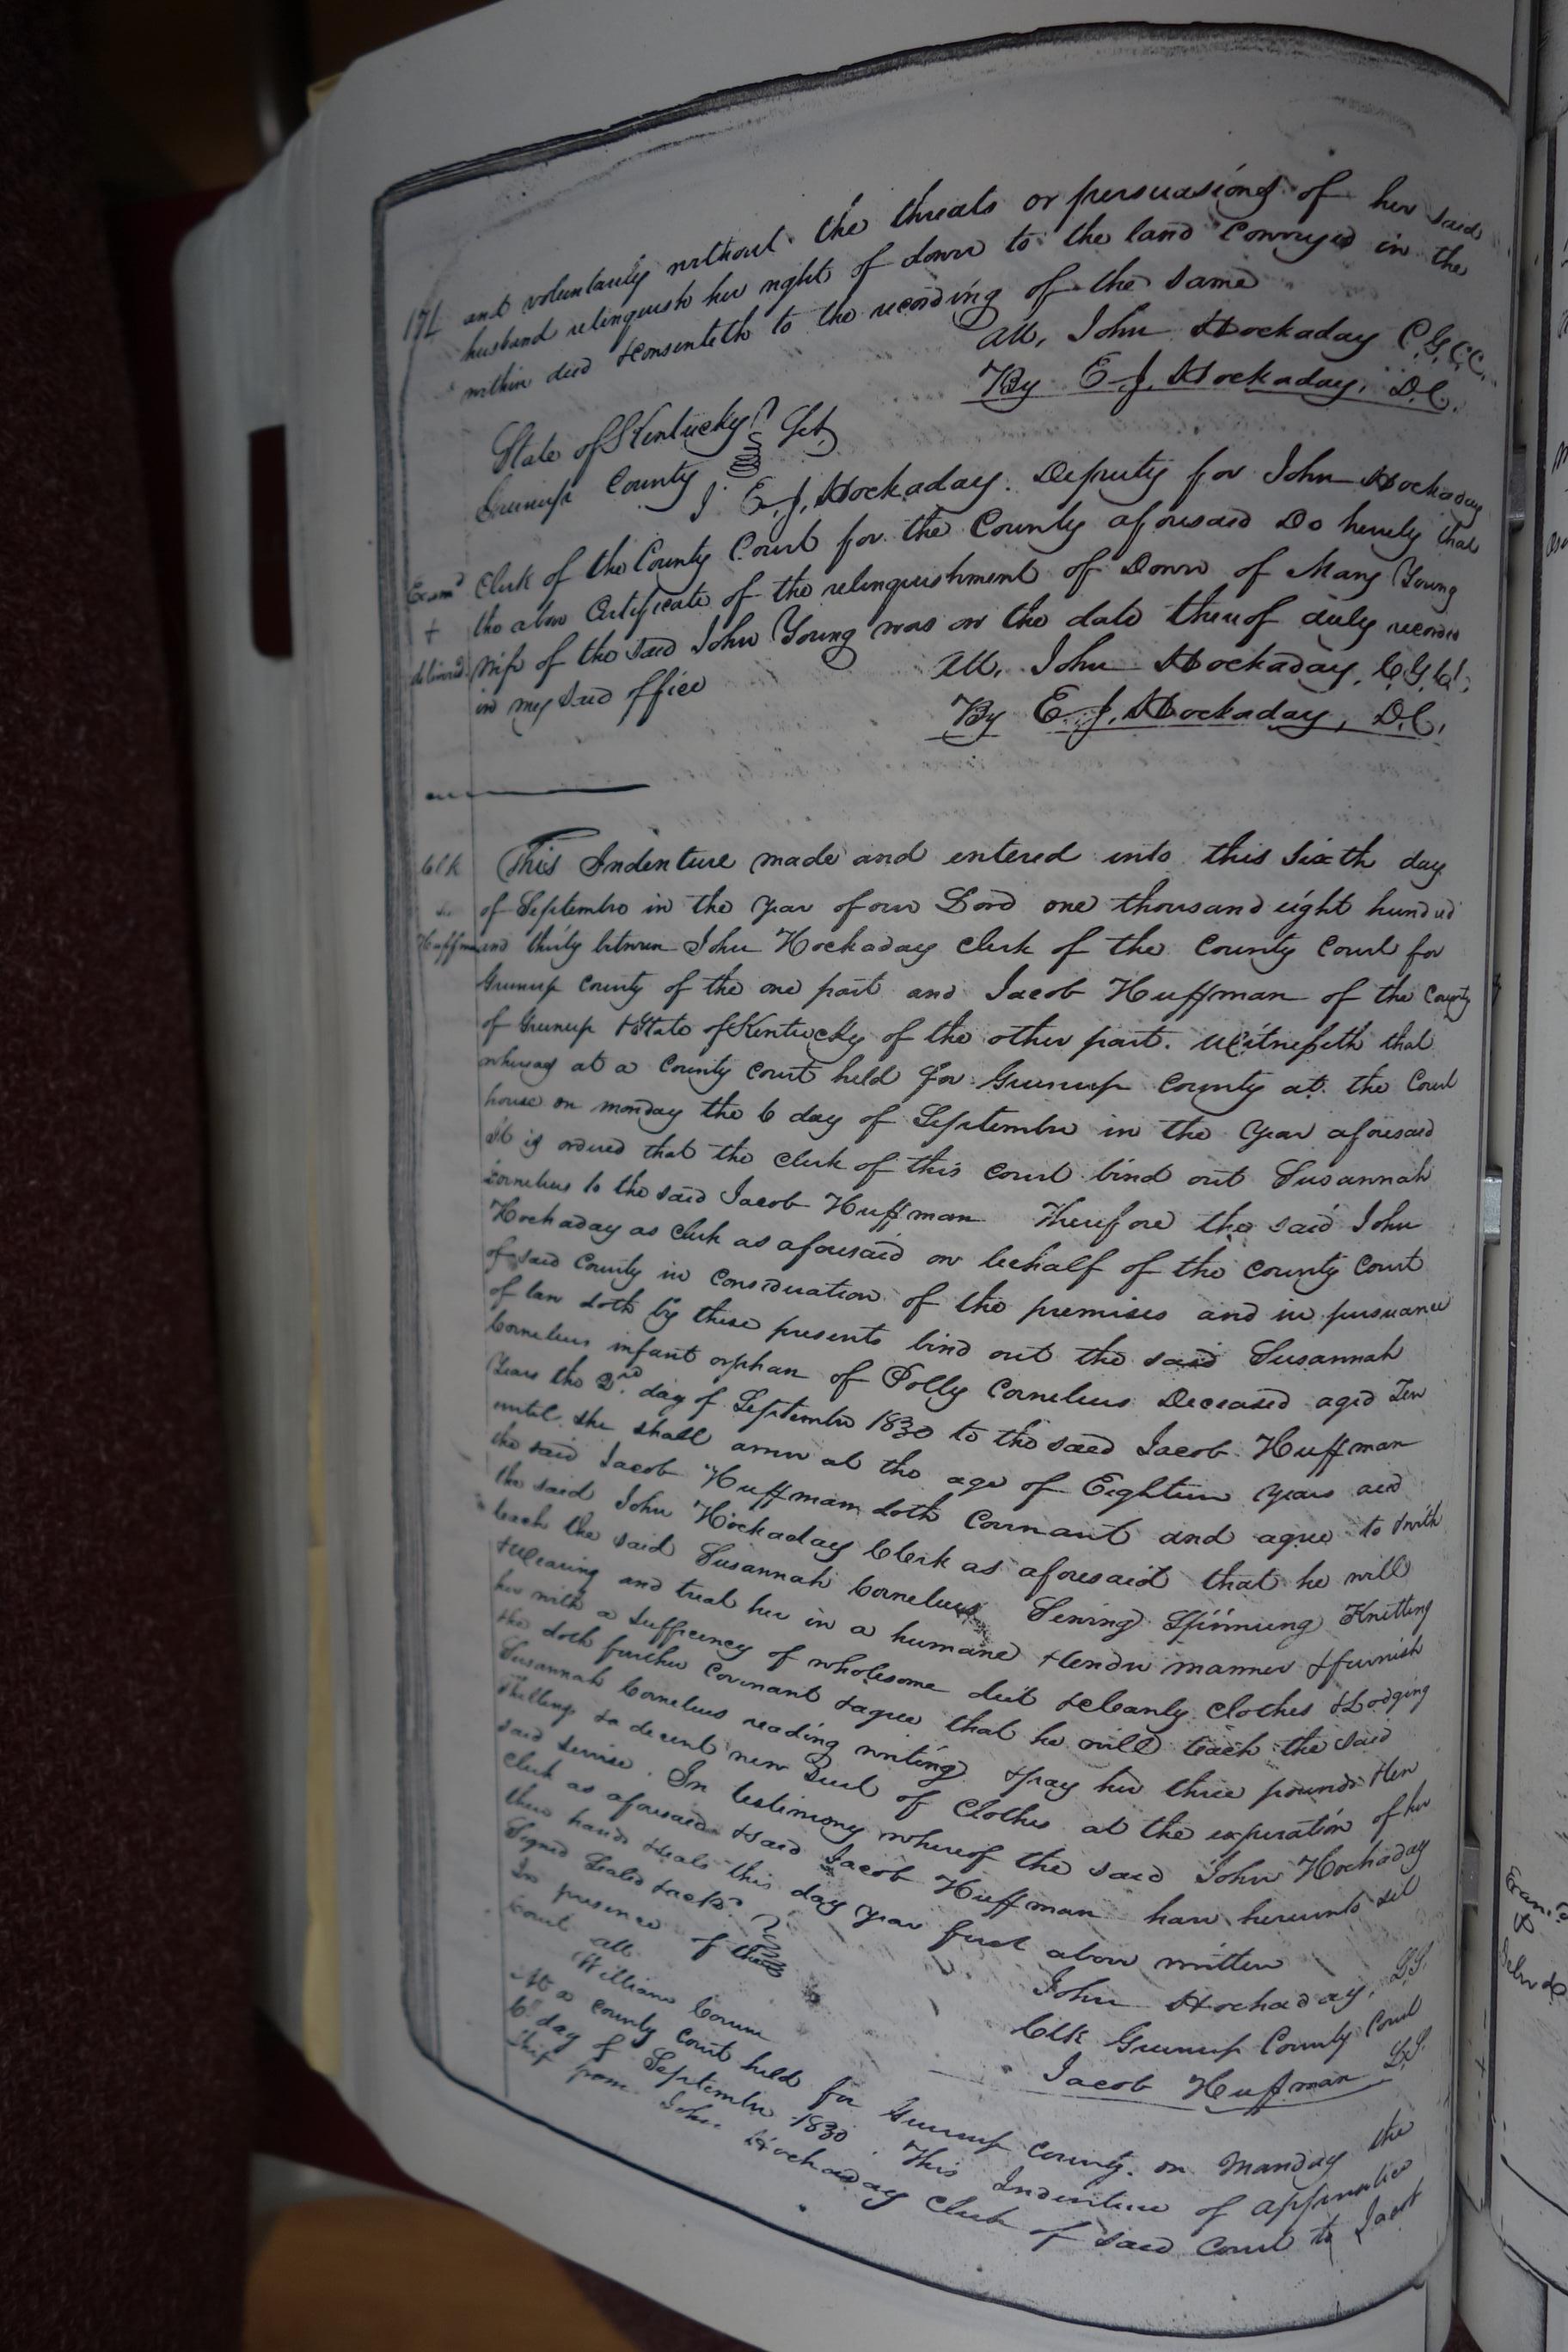 174 and voluntarily without the threats or persuasions of her said
husband relinquish her right of dower to the land conveyed in the
within deed & consenteth to the recording of the same
Att, John Hockaday C.G.C.C.
By E. J. Hockaday, D.C.
State of Kentucky
Greenup County Sct
I E. J. Hockaday. Deputy for John Hockaday
Exam.d Clerk of the County Court for the County aforesaid Do hereby that
+ the above Certificate of the relinquishment of Dower of Mary Young
delivered wife of the said John Young was on the date thereof duly recorded
in my said office
Att, John Hockaday, C.G.C.
By E. J. Hockaday, D.C.
Clk This Indenture made and entered into this sixth day
of Septembre in the year of our Lord one thousand eight hundred
Huffman and thirty between John Hockaday Clerk of the County Court for
Greenup County of the one part and Jacob Huffman of the County
of Greenup & State of Kentucky of the other part. Witnesseth that
whereas at a County Court held for Greenup County at the Court
house on monday the 6 day of Septembre in the year aforesaid
It is ordered that the clerk of this court bind out Susannah
Cornelius to the said Jacob Huffman Therefore the said John
Hockaday as clerk as aforesaid on behalf of the county court
of said County in consideration of the premises and in pursuance
of law doth by these presents bind out the said Susannah
Cornelius infant orphan of Polly Cornelius Deceased aged Ten
years the 2nd. day of Septembre 1830 to the said Jacob Huffman
until she shall arrive at the age of Eighteen years and
the said Jacob Huffman doth Covenant and agree to & with
the said John Hockaday Clerk as aforesaid that he will
teach the said Susannah Cornelius Sewing Spinning Knitting
& Wearing and treat her in a humane & tender manner & furnish
her with a sufficiency of wholesome diet & cleanly clothes & Lodging
He doth further Covenant & agree that he will teach the said
Susannah Cornelius reading writing & pay her three pounds & ten
shillings & a decent new Suit of Clothes at the expiration of her
said service. In testimony whereof the said John Hockaday
Clerk as aforesaid & said Jacob Huffman have hereunto set
their hands & seals this day year first above written
Signed Sealed & ack.d
In presence of the
Court
John Hockaday, L.S.
att.
Clk Greenup County Court
William Corum
Jacob Huffman L.S.
At a County Court held for Greenup County. on Monday the
6th day of Septembre 1830. This Indenture of apprentice
ship from John Hockaday Clerk of said Court to Jacob